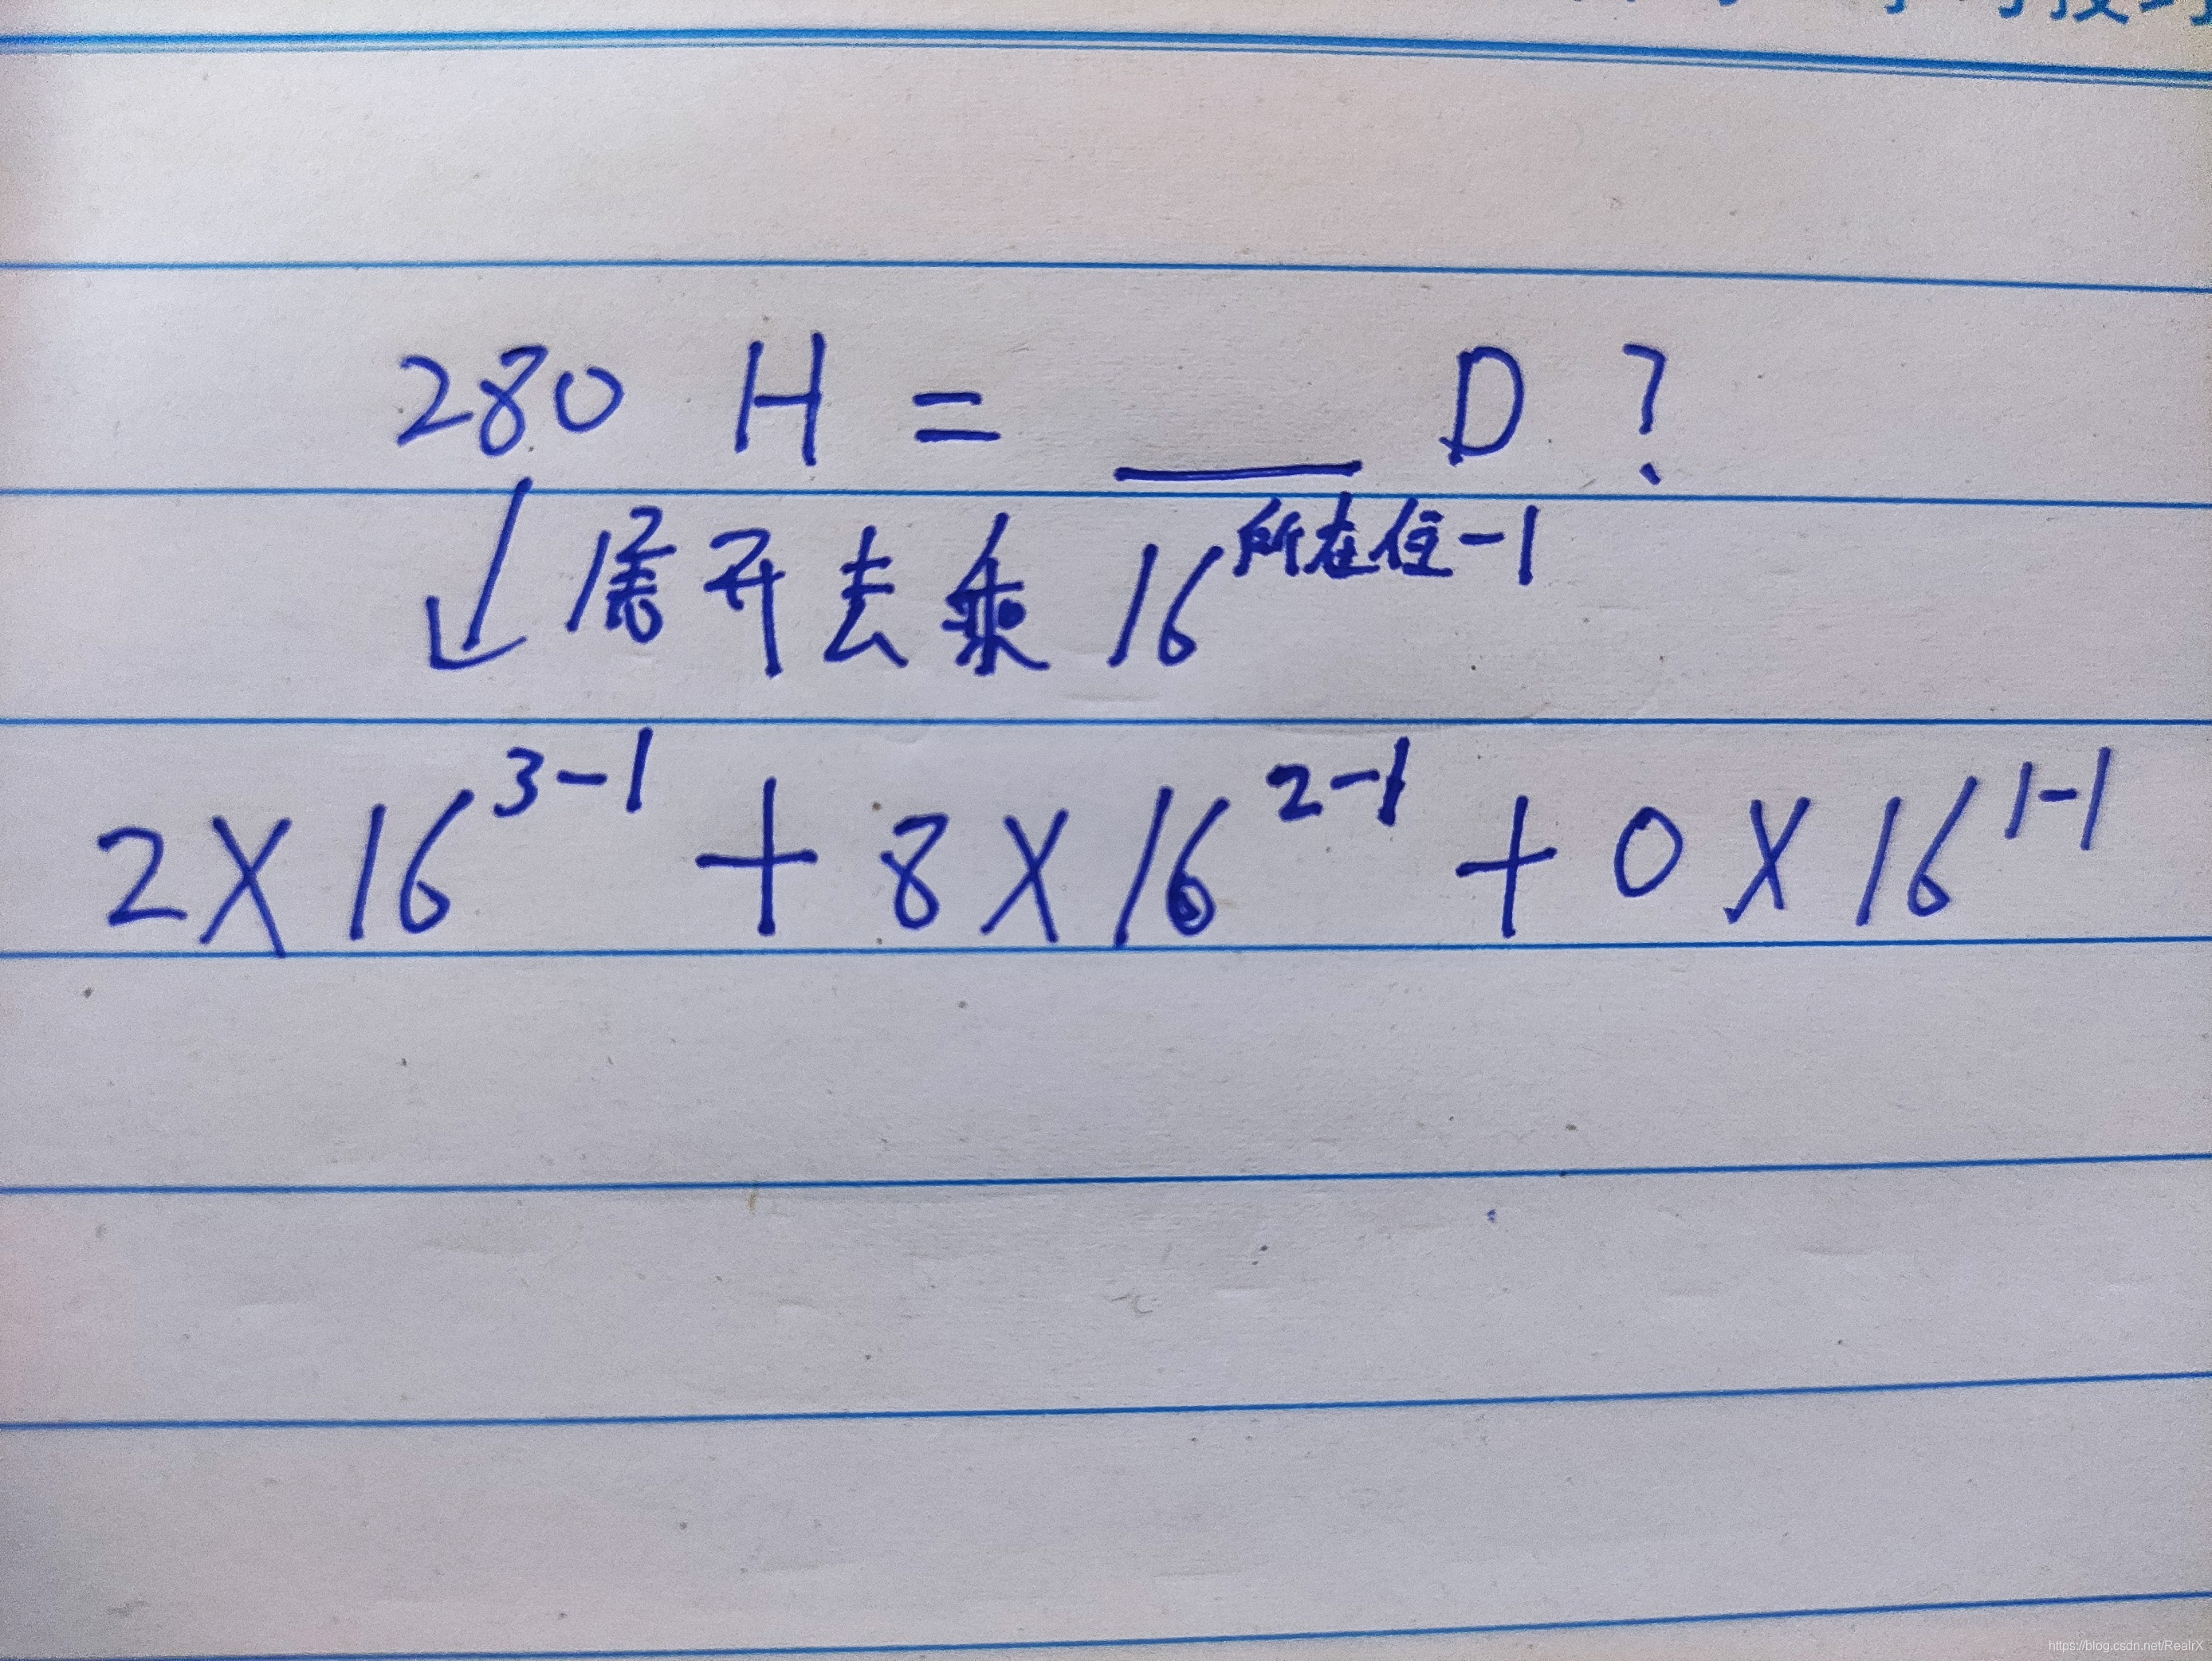 280 H = ___ D ?
↓ 展开去乘 16^所在位-1
2×16^3-1 + 8×16^2-1 + 0×16^1-1
https://blog.csdn.net/RealrX